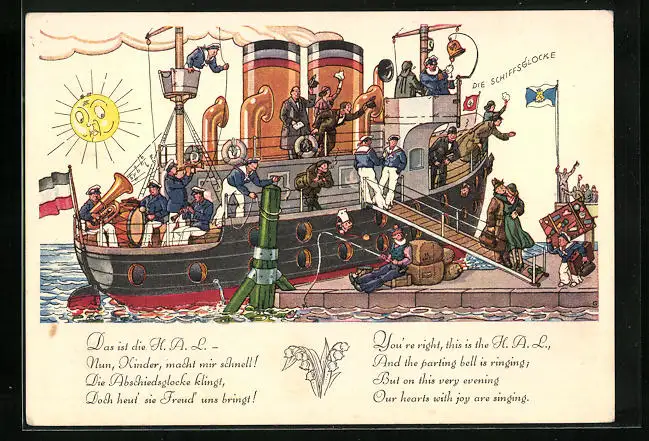 DIE SCHIFFSGLOCKE
Das ist die H. A. L. –
Nun, Kinder, macht mir schnell!
Die Abschiedsglocke klingt,
Doch heut' sie Freud' uns bringt!
You're right, this is the H. A. L.,
And the parting bell is ringing;
But on this very evening
Our hearts with joy are singing.